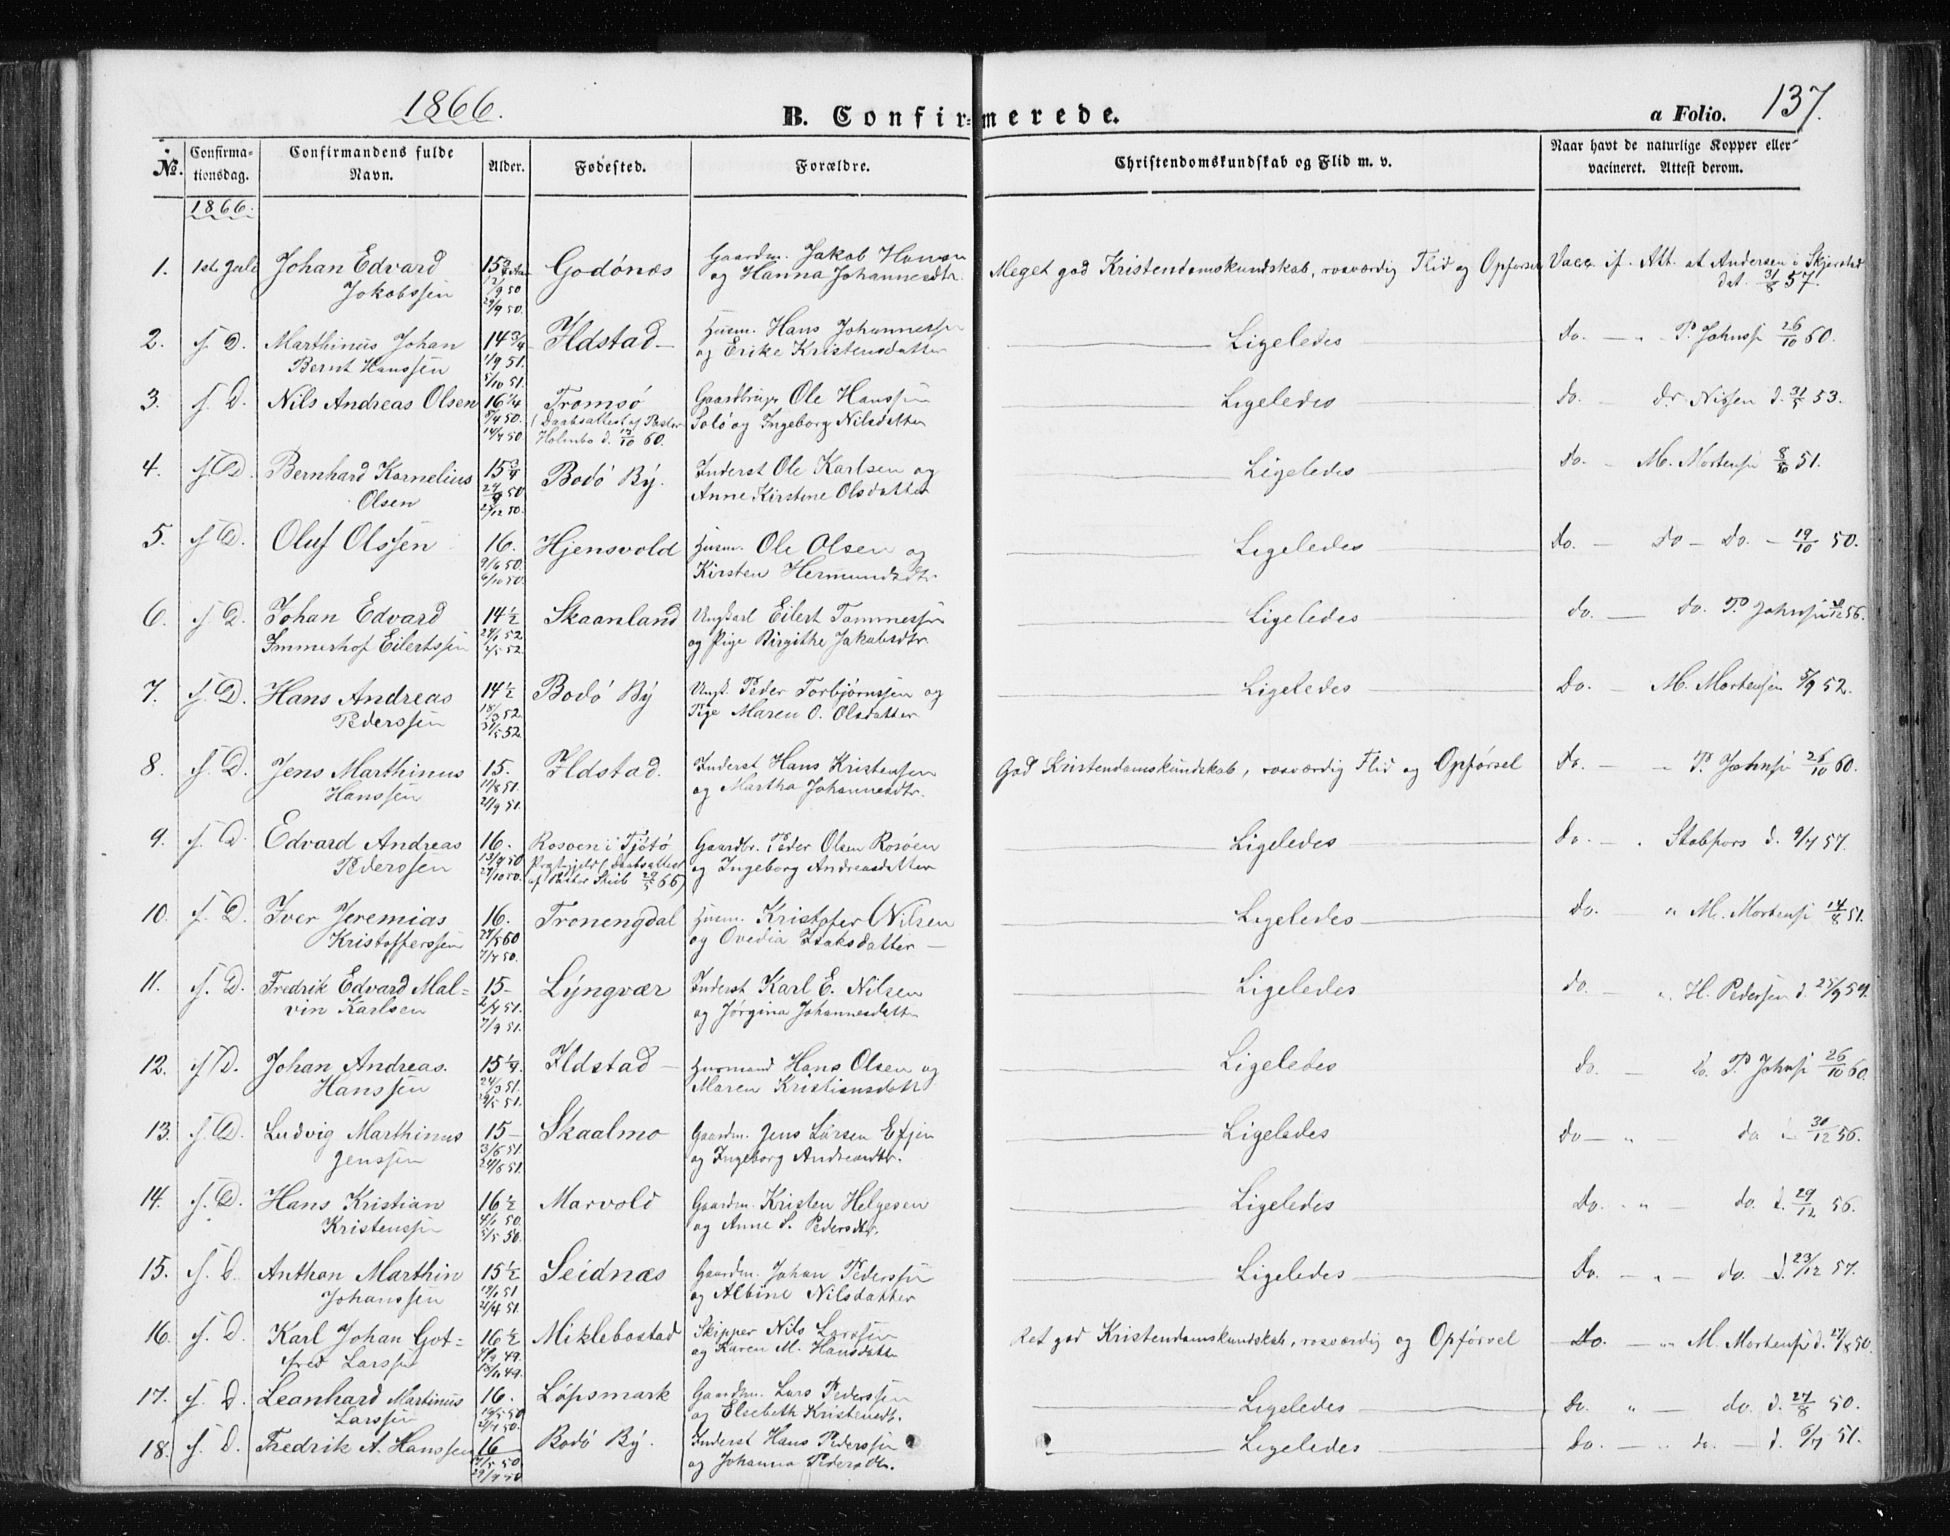 1866.
B. Confirmerede.
a Folio. 137.
No. Confirmationsdag. Confirmandens fulde Navn. Alder. Fødested. Forældre. Christendomskundskab og Flid m. v. Naar havt de naturlige Kopper eller vacineret. Attest derom.
1866.
1. 1ste Juli Johan Edvard Jakobssen 15 29/9 50. Godönæs Gaardm. Jakob Hansen og Hanna Johannesdtr. Meget god Kristendomskundskab, rosværdig Flid og Opförsel Vacc. if. Att. af Andersen i Skjerstad dat. 31/8 57.
2. s. D. Marthinus Johan Bernt Hanssen 14 3/4 1/9 51. 5/10 51. Ildstad Husm. Hans Johannessen og Erike Kristensdatter Ligeledes Do. P. Johnsen 26/10 60.
3. s. D. Nils Andreas Olsen 16 1/4 8/4 50. 14/7 50. Tromsö (Daabsattest af Pastor Holmbo d. 13/10 60. Gaardbruger Ole Hanssen Solö og Ingeborg Nilsdatter Ligeledes Do. dr Nissen d. 31/5 53.
4. s. D. Bernhard Kornelius Olsen 15 3/4 50 Bodö By. Inderst Ole Karlsen og Anne Kirstine Olsdatter Ligeledes Do. M. Mortensen 8/10 51.
5. s. D. Oluf Olssen 16. 9/6 50. 6/10 50. Hjensvold Husm. Ole Olsen og Kirsten Hermundsdtr. Ligeledes Do. Do Do. 19/10 50.
6. s. D. Johan Edvard Immerhof Eilertssen 14 1/2 52. 52. Skaanland Ungkarl Eilert Tommessen og Pige Birgithe Jakobsdtr. Ligeledes do. do. P. Johnsen 56.
7. s. D. Hans Andreas Pederssen 14 1/2 18/3 52. 31/5 52. Bodö By Ungk. Peder Torbjörnssen og Pige Maren O. Olsdatter Ligeledes Do. M. Mortensen 5/9 52.
8. s. D. Jens Marthinus Hanssen 15. 11/8 51. 21/9 51. Ildstad. Inderst Hans Kristensen og Martha Johannesdtr. God Kristendomskundskab, rosværdig Flid og Opförsel Do. P. Johnsen 26/10 60.
9. s. D. Edvard Andreas Pederssen 16. 13/9 50 27/10 50. Rosöen i Tjötö Prstgjeld (Daabsattest af Pastor 29/5 66) Gaardbr. Peder Olsen Rosöen og Ingeborg Andreasdatter Ligeledes Do. Stabfors d. 9/7 57.
10. s. D. Iver Jeremias Kristofferssen 16. 7/7 50. Tronengdal Husm. Kristofer Nilsen og Ovedia Isaksdatter Ligeledes Do. M. Mortensen 14/8 51.
11. s. D. Fredrik Edvard Malvin Karlsen 15 2/4 51. 7/9 51. Lyngvær Inderst Karl E. Nilsen og Jörgina Johannesdatter Ligeledes do. H. Pedersen d. 25/9 59.
12. s. D. Johan Andreas. Hanssen 15 1/4. 24/3 51. 29/5 51. Ildstad Husmand Hans Olsen og Maren Kristiansdatt Ligeledes do. do. P. Johnsen 26/10 60.
13. s. D. Ludvig Marthinus Jenssen 15 3/6 51. 24/8 51. Skaalmo Gaardm. Jens Larsen Efjen og Ingeborg Andreasdtr. Ligeledes do do 30/12 56.
14. s. D. Hans Kristian Kristenssen 16 1/2 4/1 50. 5/5 50. Marvold Gaardm. Kristen Helgesen og Anne S. Pedersdtr. Ligeledes do. do. d. 29/12 56.
15. s. D. Anthon Marthin Johanssen 15 1/2 51 21/4 51. Seidnæs Gaardm. Johan Pederssen og Albine Nilsdatter Ligeledes Do. do. d. 23/12 57.
16. s. D. Karl Johan Gotfred Larssen 16 1/2 49. 49. Miklebostad Skipper Nils Larssen og Karen M. Hansdatter Ret god Kristendomskundskab, rosværdig og Opförsel Do. M. Mortensen d. 27/8 50.
17. s. D. Leonhard Martinus Larssen 16. 19/5 50 21/7 50. Löpsmark Gaardm. Lars Pederssen og Elsebeth Kristensdtr. Ligeledes do. do. d. 27/8 50.
18. s. D. Fredrik A. Hanssen 16 50 50 Bodö By. Inderst Hans Pederssen og Johanna Pedersdtr. Ligeledes Do. do. d. 6/7 51.